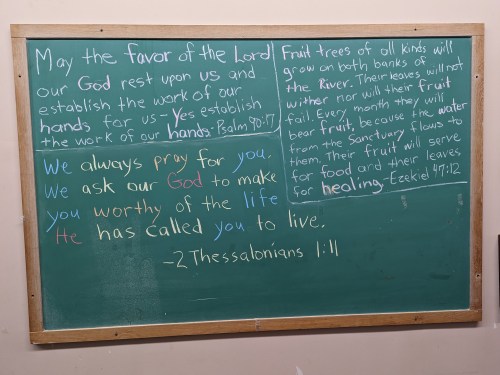 May the favor of the Lord
our God rest upon us and
establish the work of our
hands for us - Yes establish
the work of our hands - Psalm 90:17
Fruit trees of all kinds will
grow on both banks of
the River. Their leaves will not
wither nor will their fruit
fail. Every month they will
bear fruit, because the water
from the Sanctuary flows to
them. Their fruit will serve
for food and their leaves
for healing - Ezekiel 47:12
We always pray for you.
We ask our God to make
you worthy of the life
He has called you to live.
-2 Thessalonians 1:11